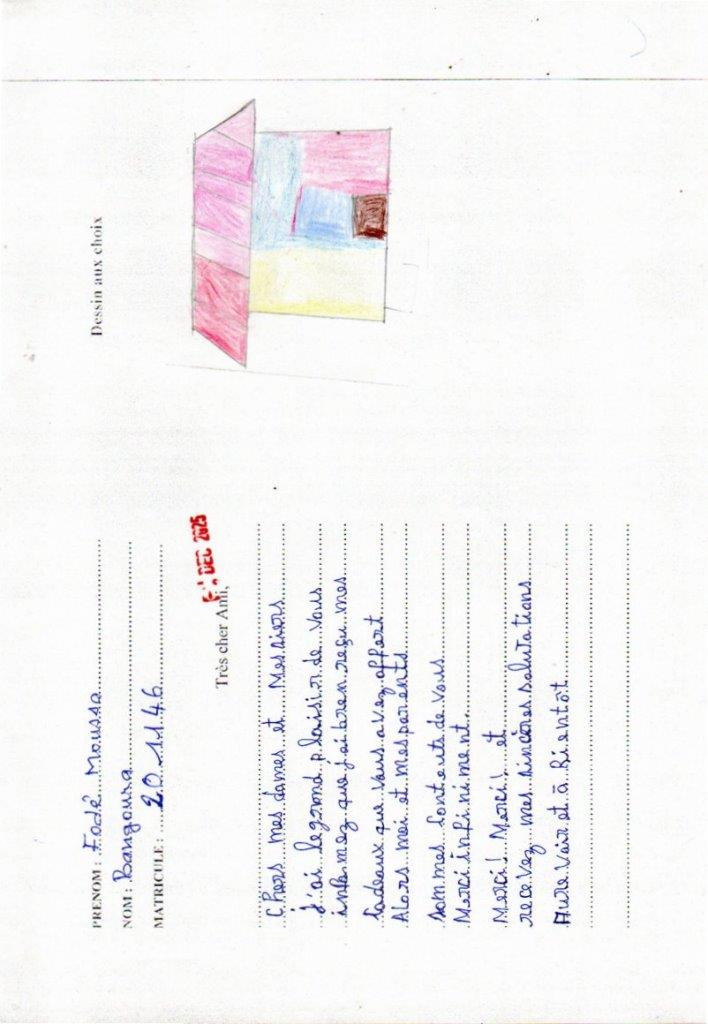 PRENOM : Fodé Moussa
NOM : Bangoura
MATRICULE : 20 1146
DEC 2025
Très cher Ami,
Chers mes dames et Messiers
J'ai legrand plaisir de Vous
informez que j'ai bien reçu mes
Cadeaux que Vous avez offert
Alors moi et mes parents
Sommes Contents de Vous
Merci infiniment.
Merci! Merci! et
recevez mes sincères salutations
Aure Voir et à Bientôt
Dessin aux choix